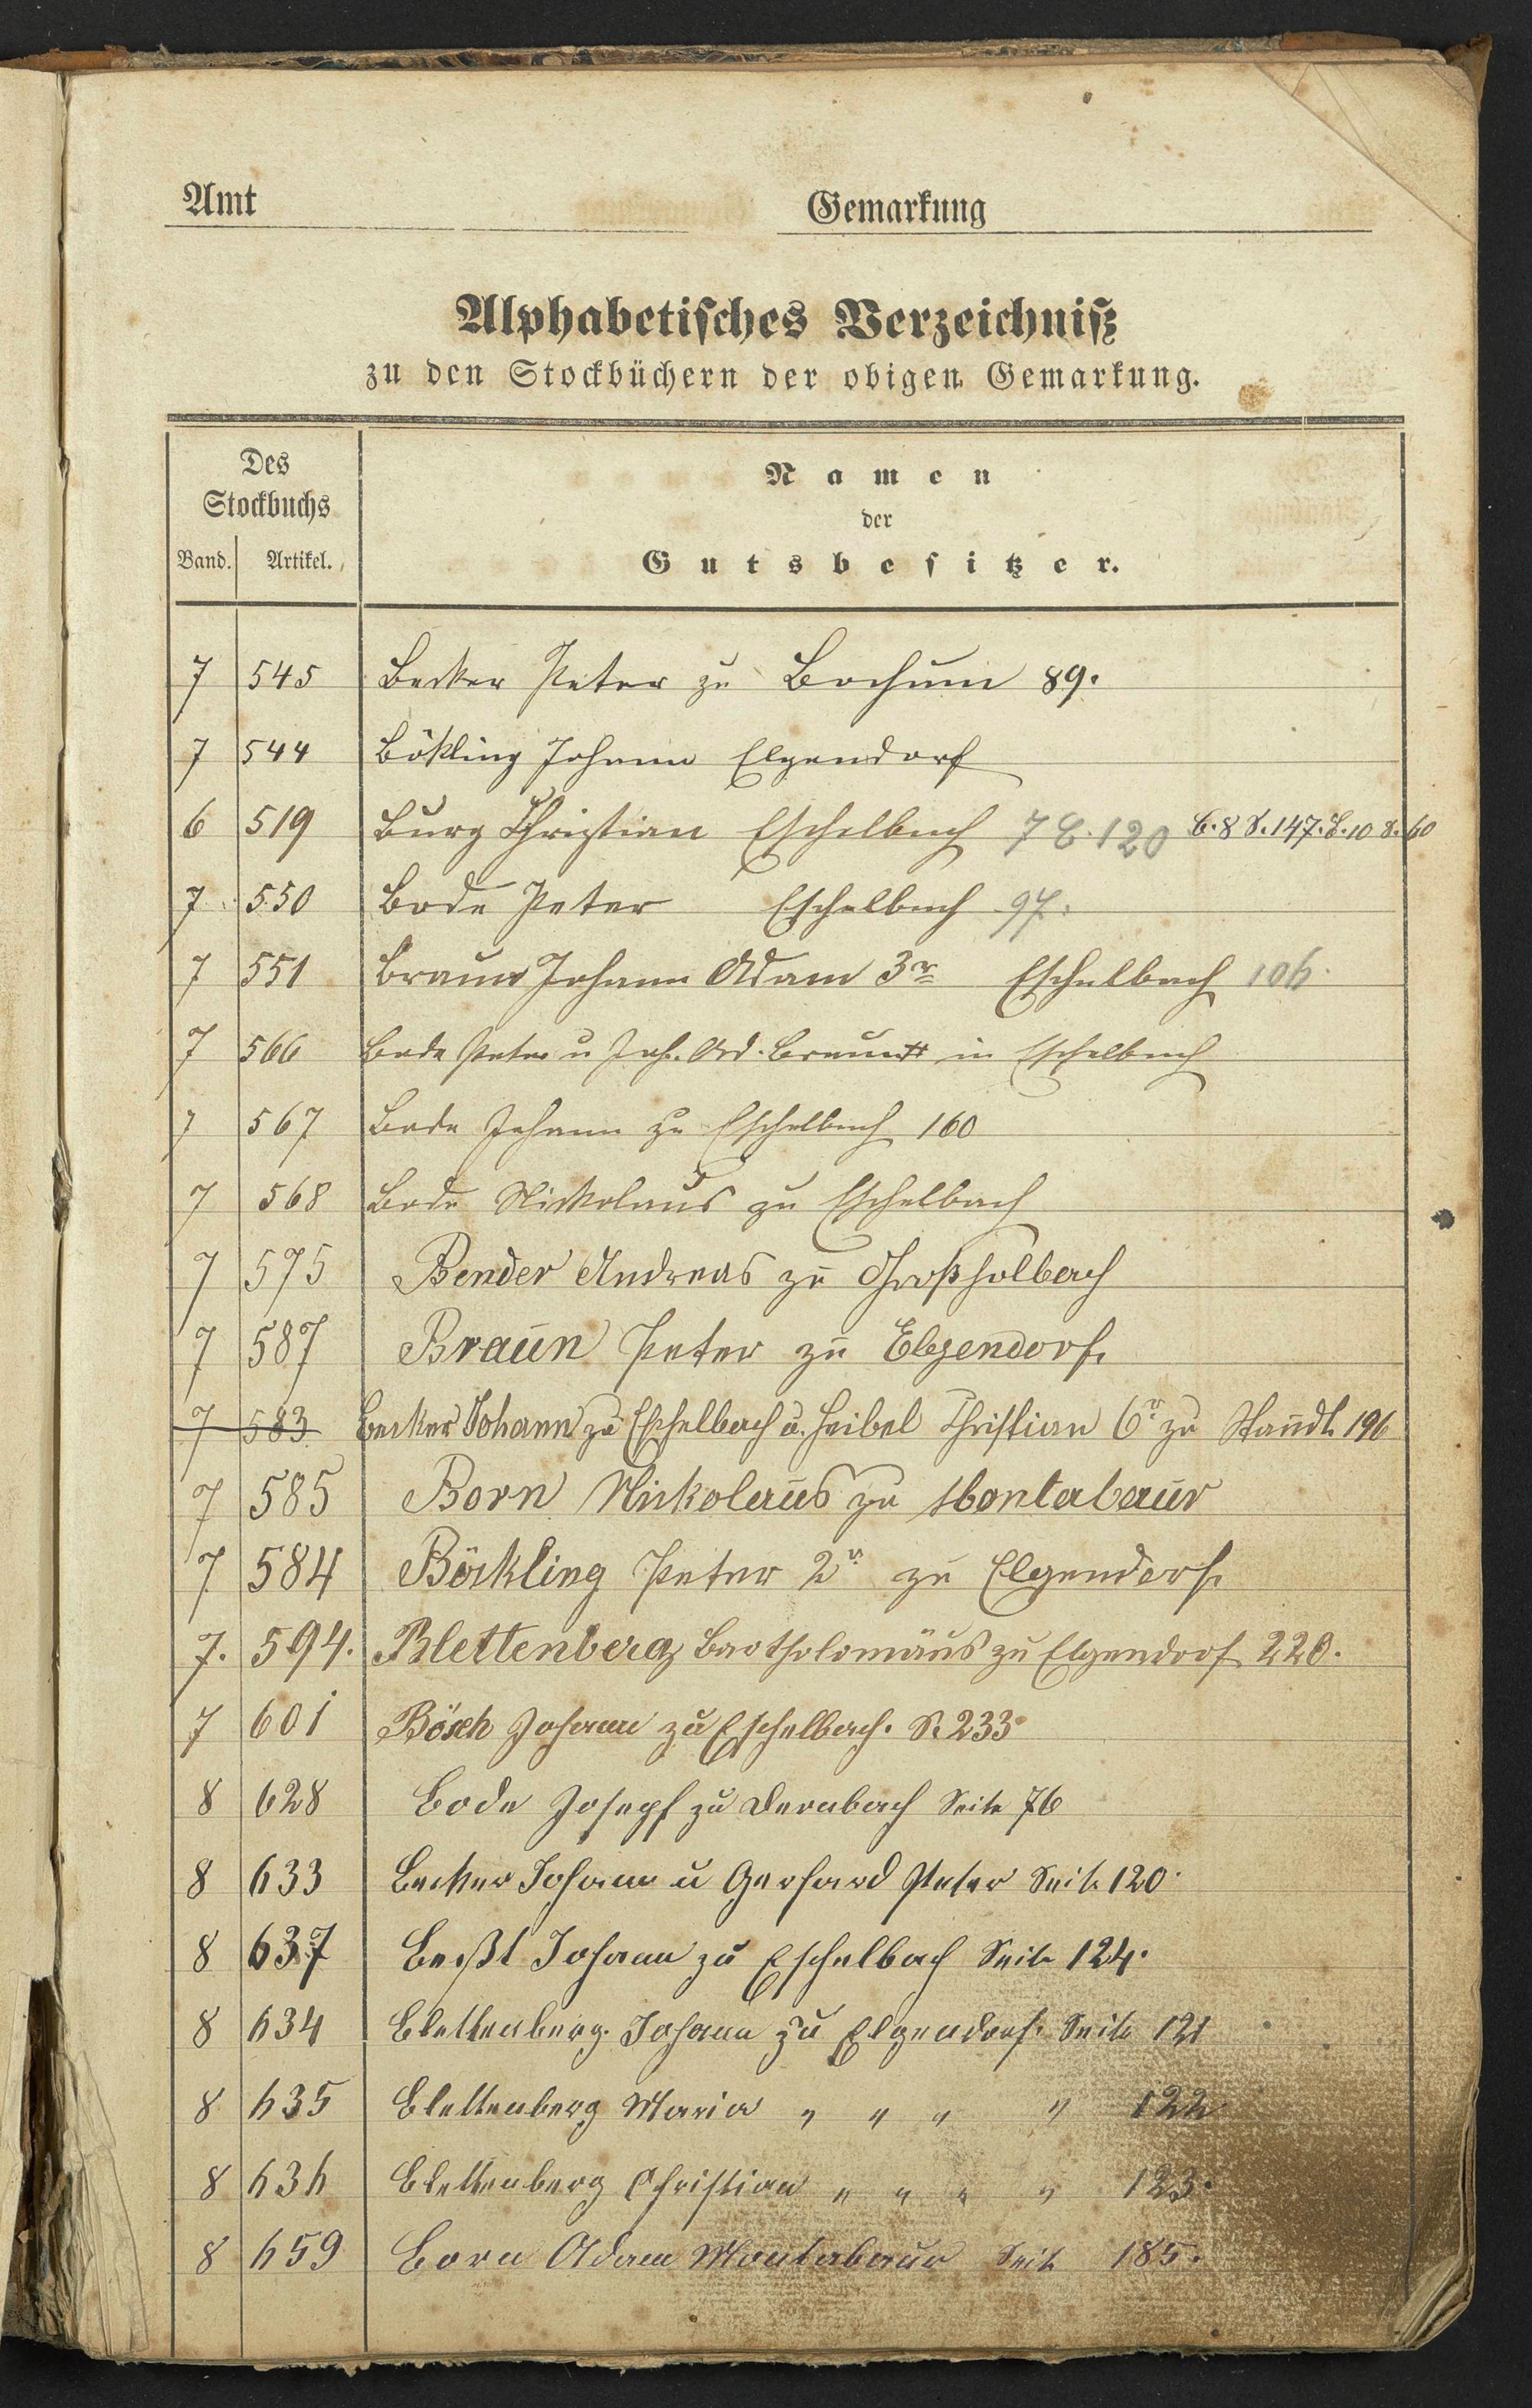 Amt Gemarkung
Alphabetisches Verzeichniß
zu den Stockbüchern der obigen Gemarkung.
Des
Stockbuchs
Band. Artikel.
Namen
der
Gutsbesitzer.
7 545 Becker Peter zu Bochum 89.
7 544 Bökling Johann Elgendorf
6 519 Burg Christian Eschelbach 7 S. 120 B. 8 S. 147. B. 10 S. 60
7 550 Bode Peter Eschelbach 97.
7 551 Braun Johann Adam 3r Eschelbach 106.
7 566 Bode Peter u Joh. Ad. Braun in Eschelbach
7 567 Bode Johann zu Eschelbach 160
7 568 Bode Nickolaus zu Eschelbach
7 575 Bender Andreas zu Großholbach
7 587 Braun Peter zu Elgendorf.
7 583 Becker Johann zu Eschelbach u. Heibel Christian 6r zu Staudt 196
7 585 Born Nickolaus zu Montabaur
7 584 Böckling Peter 2r zu Elgendorf.
7. 594. Blettenberg Bartholomäus zu Elgendorf 220.
7 601 Bösch Johann zu Eschelbach. S. 233
8 628 Bode Joseph zu Dernbach Seite 76
8 633 Becker Johann u Gerhard Peter Seite 120.
8 637 Johann zu Eschelbach Seite 124.
8 634 Blettenberg Johann zu Elgendorf. Seite 121
8 635 Blettenberg Maria " " " " 122
8 636 Blettenberg Christian " " " " 123.
8 659 Born Adam Montabaur Seite 185.